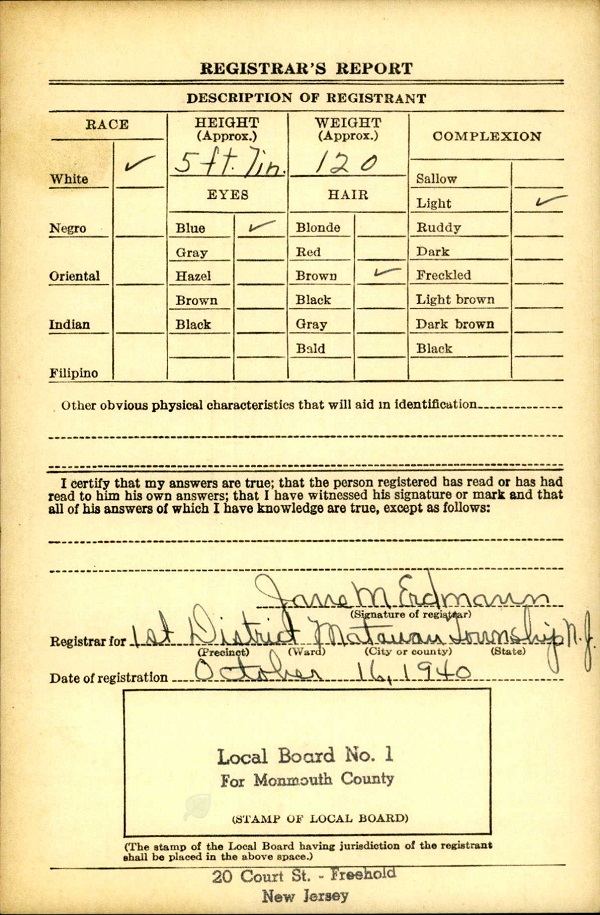 REGISTRAR'S REPORT
DESCRIPTION OF REGISTRANT
RACE
HEIGHT
(Approx.)
WEIGHT
(Approx.)
COMPLEXION
White ✓
5 ft. 7 in.
120
Sallow
EYES
HAIR
Light ✓
Negro
Blue ✓
Blonde
Ruddy
Gray
Red
Dark
Oriental
Hazel
Brown ✓
Freckled
Brown
Black
Light brown
Indian
Black
Gray
Dark brown
Bald
Black
Filipino
Other obvious physical characteristics that will aid in identification
I certify that my answers are true; that the person registered has read or has had
read to him his own answers; that I have witnessed his signature or mark and that
all of his answers of which I have knowledge are true, except as follows:
Jane M Erdmann
(Signature of registrar)
Registrar for 1st District Matawan Township N.J.
(Precinct) (Ward) (City or county) (State)
Date of registration October 16, 1940
Local Board No. 1
For Monmouth County
(STAMP OF LOCAL BOARD)
(The stamp of the Local Board having jurisdiction of the registrant
shall be placed in the above space.)
20 Court St. - Freehold
New Jersey